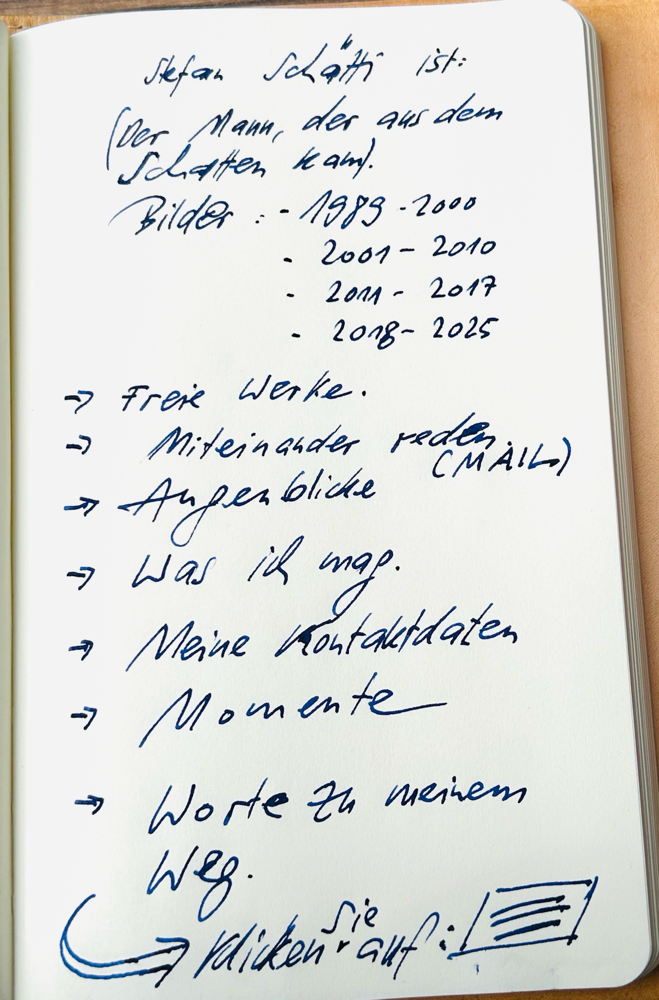 Stefan Schätti ist:
(Der Mann, der aus dem
Schatten kam).
Bilder : - 1989 - 2000
- 2001 - 2010
- 2011 - 2017
- 2018 - 2025
→ Freie Werke.
→ Miteinander reden.
(MAIL)
→ Augenblicke
→ Was ich mag.
→ Meine Kontaktdaten
→ Momente
→ Worte zu meinem
Weg.
→ Klicken Sie auf :